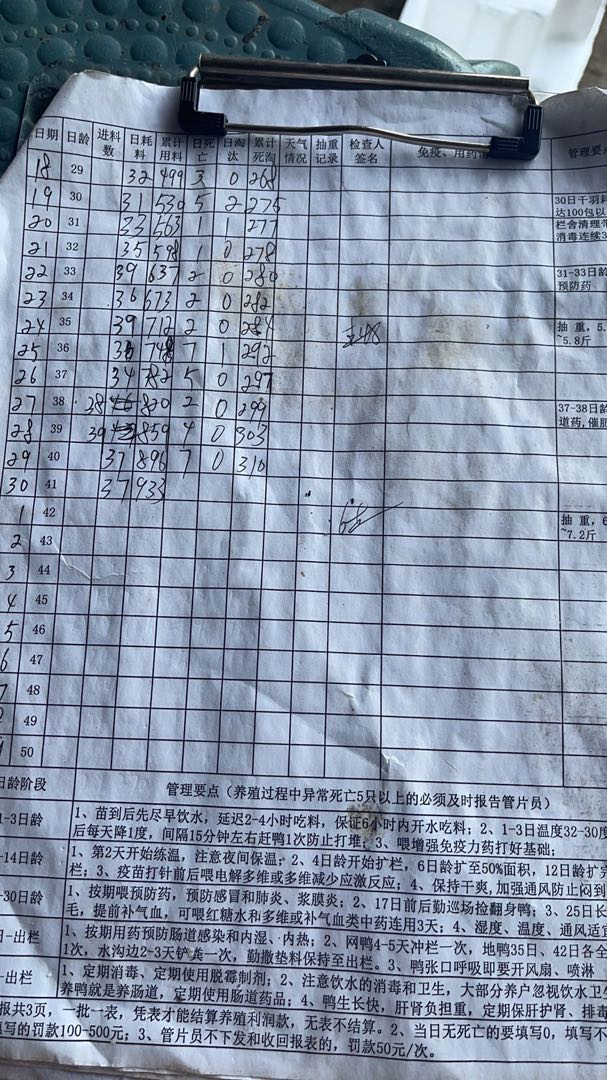 日期 日龄 进料数 日耗料 累计用料 日死亡 日淘汰 累计死淘 天气情况 抽重记录 检查人签名 免疫、用药情 管理要点
18 29 32 499 3 0 268
19 30 31 530 5 2 275 30日千羽耗
达100包以
20 31 33 563 1 1 277 栏舍清理带
消毒连续3
21 32 35 598 1 0 278
22 33 39 637 2 0 280 31-33日龄
预防药
23 34 36 673 2 0 282
24 35 39 712 2 0 284 抽 重，5.
~5.8斤
25 36 36 748 7 1 292
26 37 34 782 5 0 297
27 38 38 820 2 0 299 37-38日龄
道药,催肥
28 39 39 859 4 0 303
29 40 37 896 7 0 310
30 41 37 933
1 42 抽 重，6
~7.2斤
2 43
3 44
4 45
5 46
6 47
7 48
49
50
日龄阶段 管理要点（养殖过程中异常死亡5只以上的必须及时报告管片员）
1-3日龄 1、苗到后先尽早饮水，延迟2-4小时吃料，保证6小时内开水吃料；2、1-3日温度32-30度
后每天降1度，间隔15分钟左右赶鸭1次防止打堆；3、喂增强免疫力药打好基础；
-14日龄 1、第2天开始练温，注意夜间保温；2、4日龄开始扩栏，6日龄扩至50%面积，12日龄扩完
栏；3、疫苗打针前后喂电解多维或多维减少应激反应；4、保持干爽,加强通风防止闷到
-30日龄 1、按期喂预防药，预防感冒和肺炎、浆膜炎；2、17日前后勤巡场捡翻身鸭；3、25日长
毛，提前补气血，可喂红糖水和多维或补气血类中药连用3天；4、湿度、温度、通风适宜
-出栏 1、按期用药预防肠道感染和内湿、内热；2、网鸭4-5天冲栏一次，地鸭35日、42日各全
1次，水沟边2-3天铲粪一次，勤撒垫料保持至出栏。3、鸭张口呼吸即要开风扇、喷淋
-出栏 1、定期消毒、定期使用脱霉制剂；2、注意饮水的消毒和卫生，大部分养户忽视饮水卫生
养鸭就是养肠道，定期使用肠道药品；4、鸭生长快，肝肾负担重，定期保肝护肾、排毒
报共3页，一批一表，凭表才能结算养殖利润款，无表不结算。2、当日无死亡的要填写0，填写不
填写的罚款100-500元；3、管片员不下发和收回报表的，罚款50元/次。